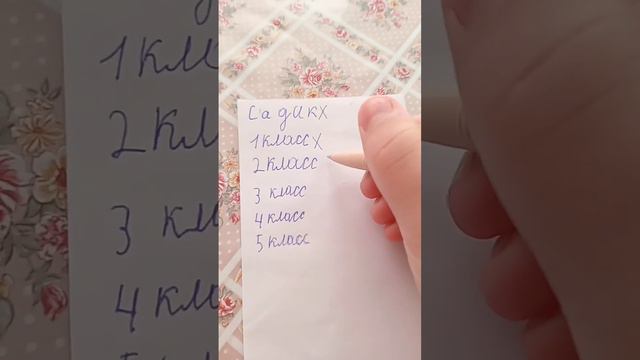 СадикX
1 классX
2 класс
3 класс
4 класс
5 класс